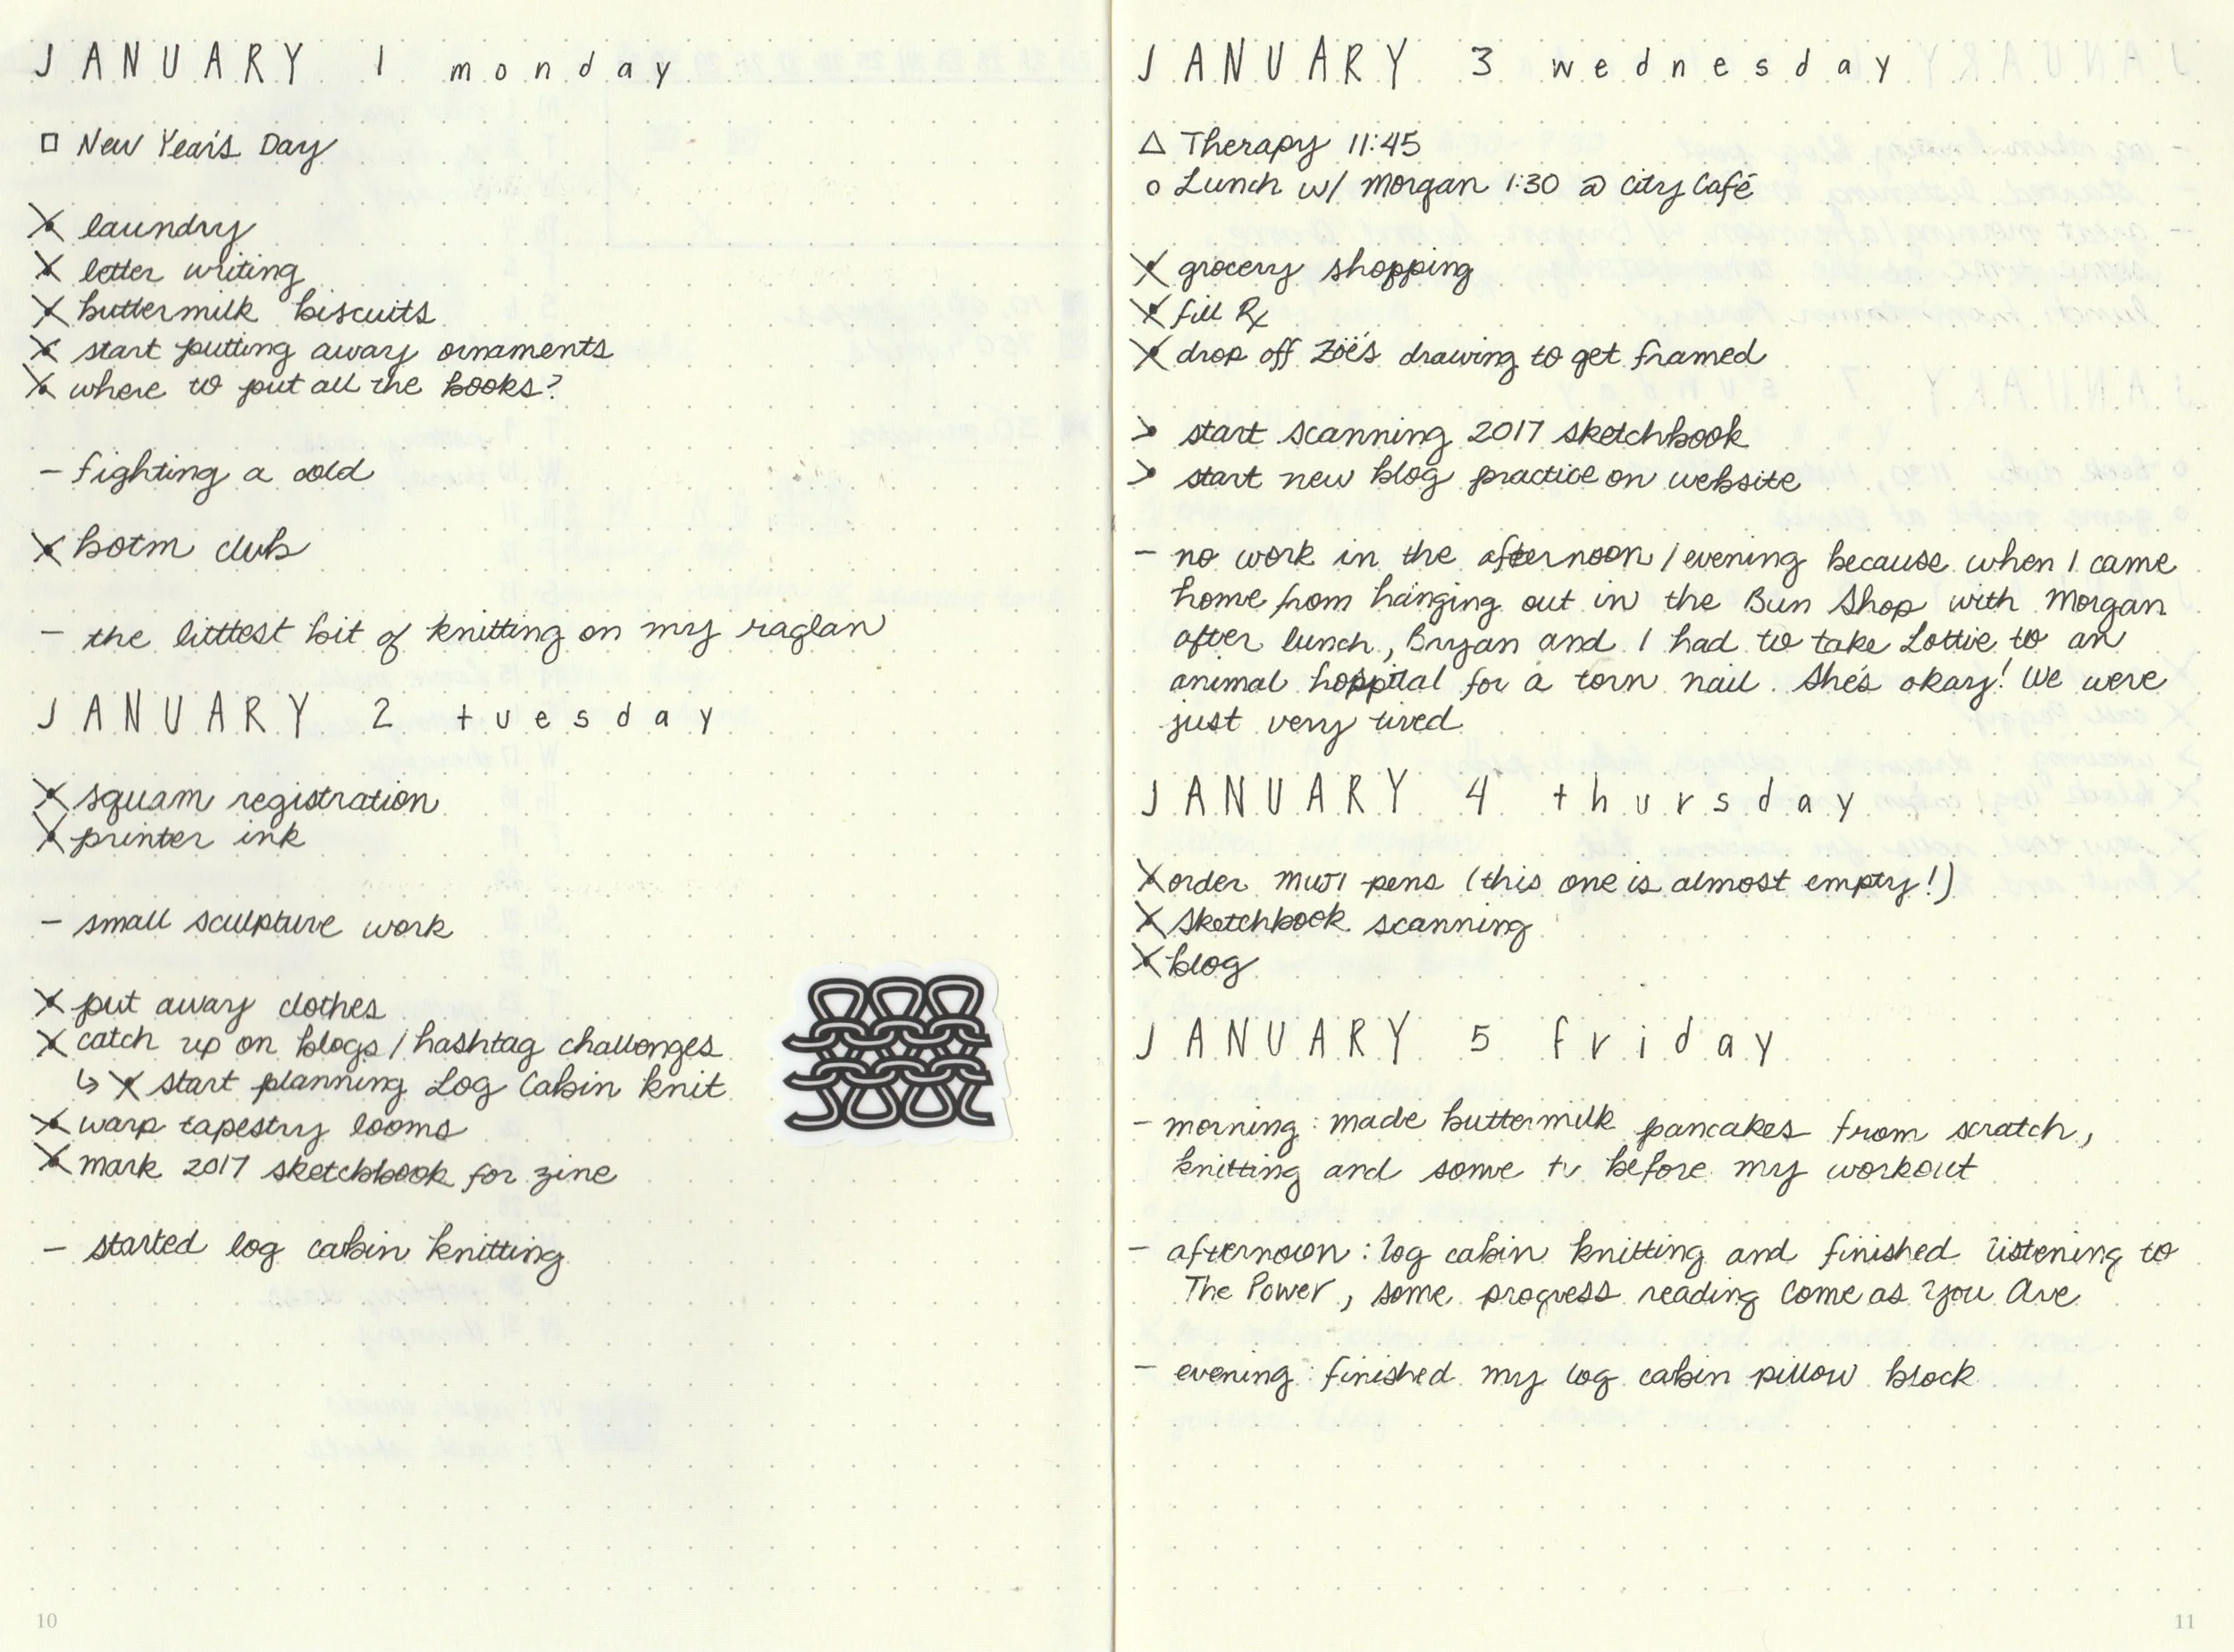 JANUARY 1 monday
□ New Year's Day
× laundry
× letter writing
× buttermilk biscuits
× start putting away ornaments
× where to put all the books?
- fighting a cold
× botm club
- the littlest bit of knitting on my raglan
JANUARY 2 tuesday
× squam registration
× printer ink
- small sculpture work
× put away clothes
× catch up on blogs / hashtag challenges
↳ × start planning Log Cabin knit
× warp tapestry looms
× mark 2017 sketchbook for zine
- started log cabin knitting
10
JANUARY 3 wednesday
△ Therapy 11:45
○ Lunch w/ Morgan 1:30 @ City Café
× grocery shopping
× fill Rx
× drop off Zoë's drawing to get framed
> start scanning 2017 sketchbook
> start new blog practice on website
- no work in the afternoon / evening because when I came
home from hanging out in the Bun Shop with Morgan
after lunch, Bryan and I had to take Lottie to an
animal hospital for a torn nail. She's okay! We were
just very tired
JANUARY 4 thursday
× order MUJI pens (this one is almost empty!)
× sketchbook scanning
× blog
JANUARY 5 friday
- morning: made buttermilk pancakes from scratch,
knitting and some tv before my workout
- afternoon: log cabin knitting and finished listening to
The Power, some progress reading Come as You Are
- evening: finished my log cabin pillow block
11